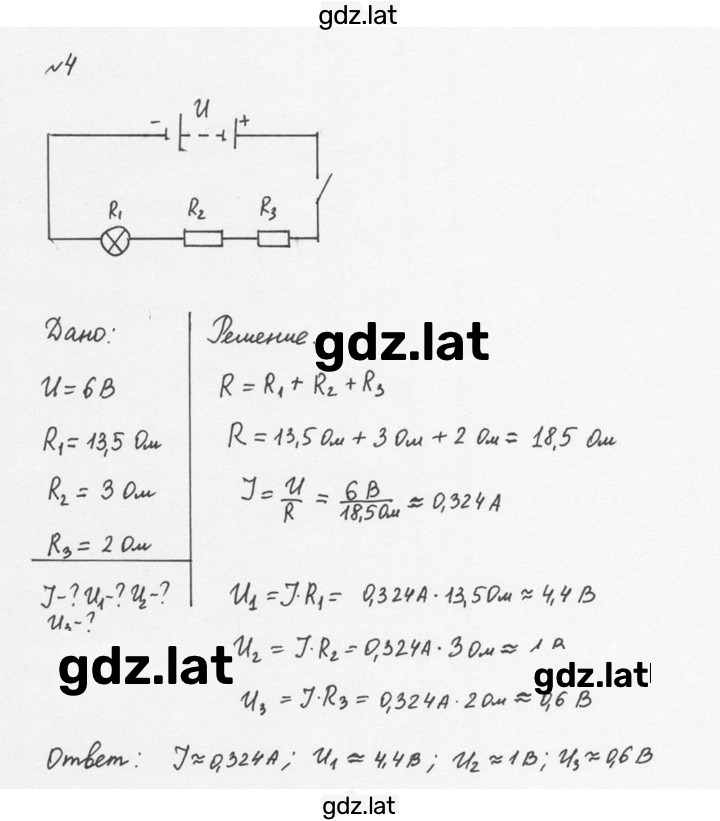 gdz.lat
№4
- U +
R₁ R₂ R₃
Дано:
U = 6 В
R₁ = 13,5 Ом
R₂ = 3 Ом
R₃ = 2 Ом
I-? U₁-? U₂-?
U₃-?
Решение
gdz.lat
R = R₁ + R₂ + R₃
R = 13,5 Ом + 3 Ом + 2 Ом = 18,5 Ом
I = U/R = 6 В/18,5 Ом ≈ 0,324 А
U₁ = I·R₁ = 0,324 А · 13,5 Ом ≈ 4,4 В
U₂ = I·R₂ = 0,324 А · 3 Ом ≈ 1 В
gdz.lat
gdz.lat
U₃ = I·R₃ = 0,324 А · 2 Ом ≈ 0,6 В
Ответ: I ≈ 0,324 А; U₁ ≈ 4,4 В; U₂ ≈ 1 В; U₃ ≈ 0,6 В
gdz.lat